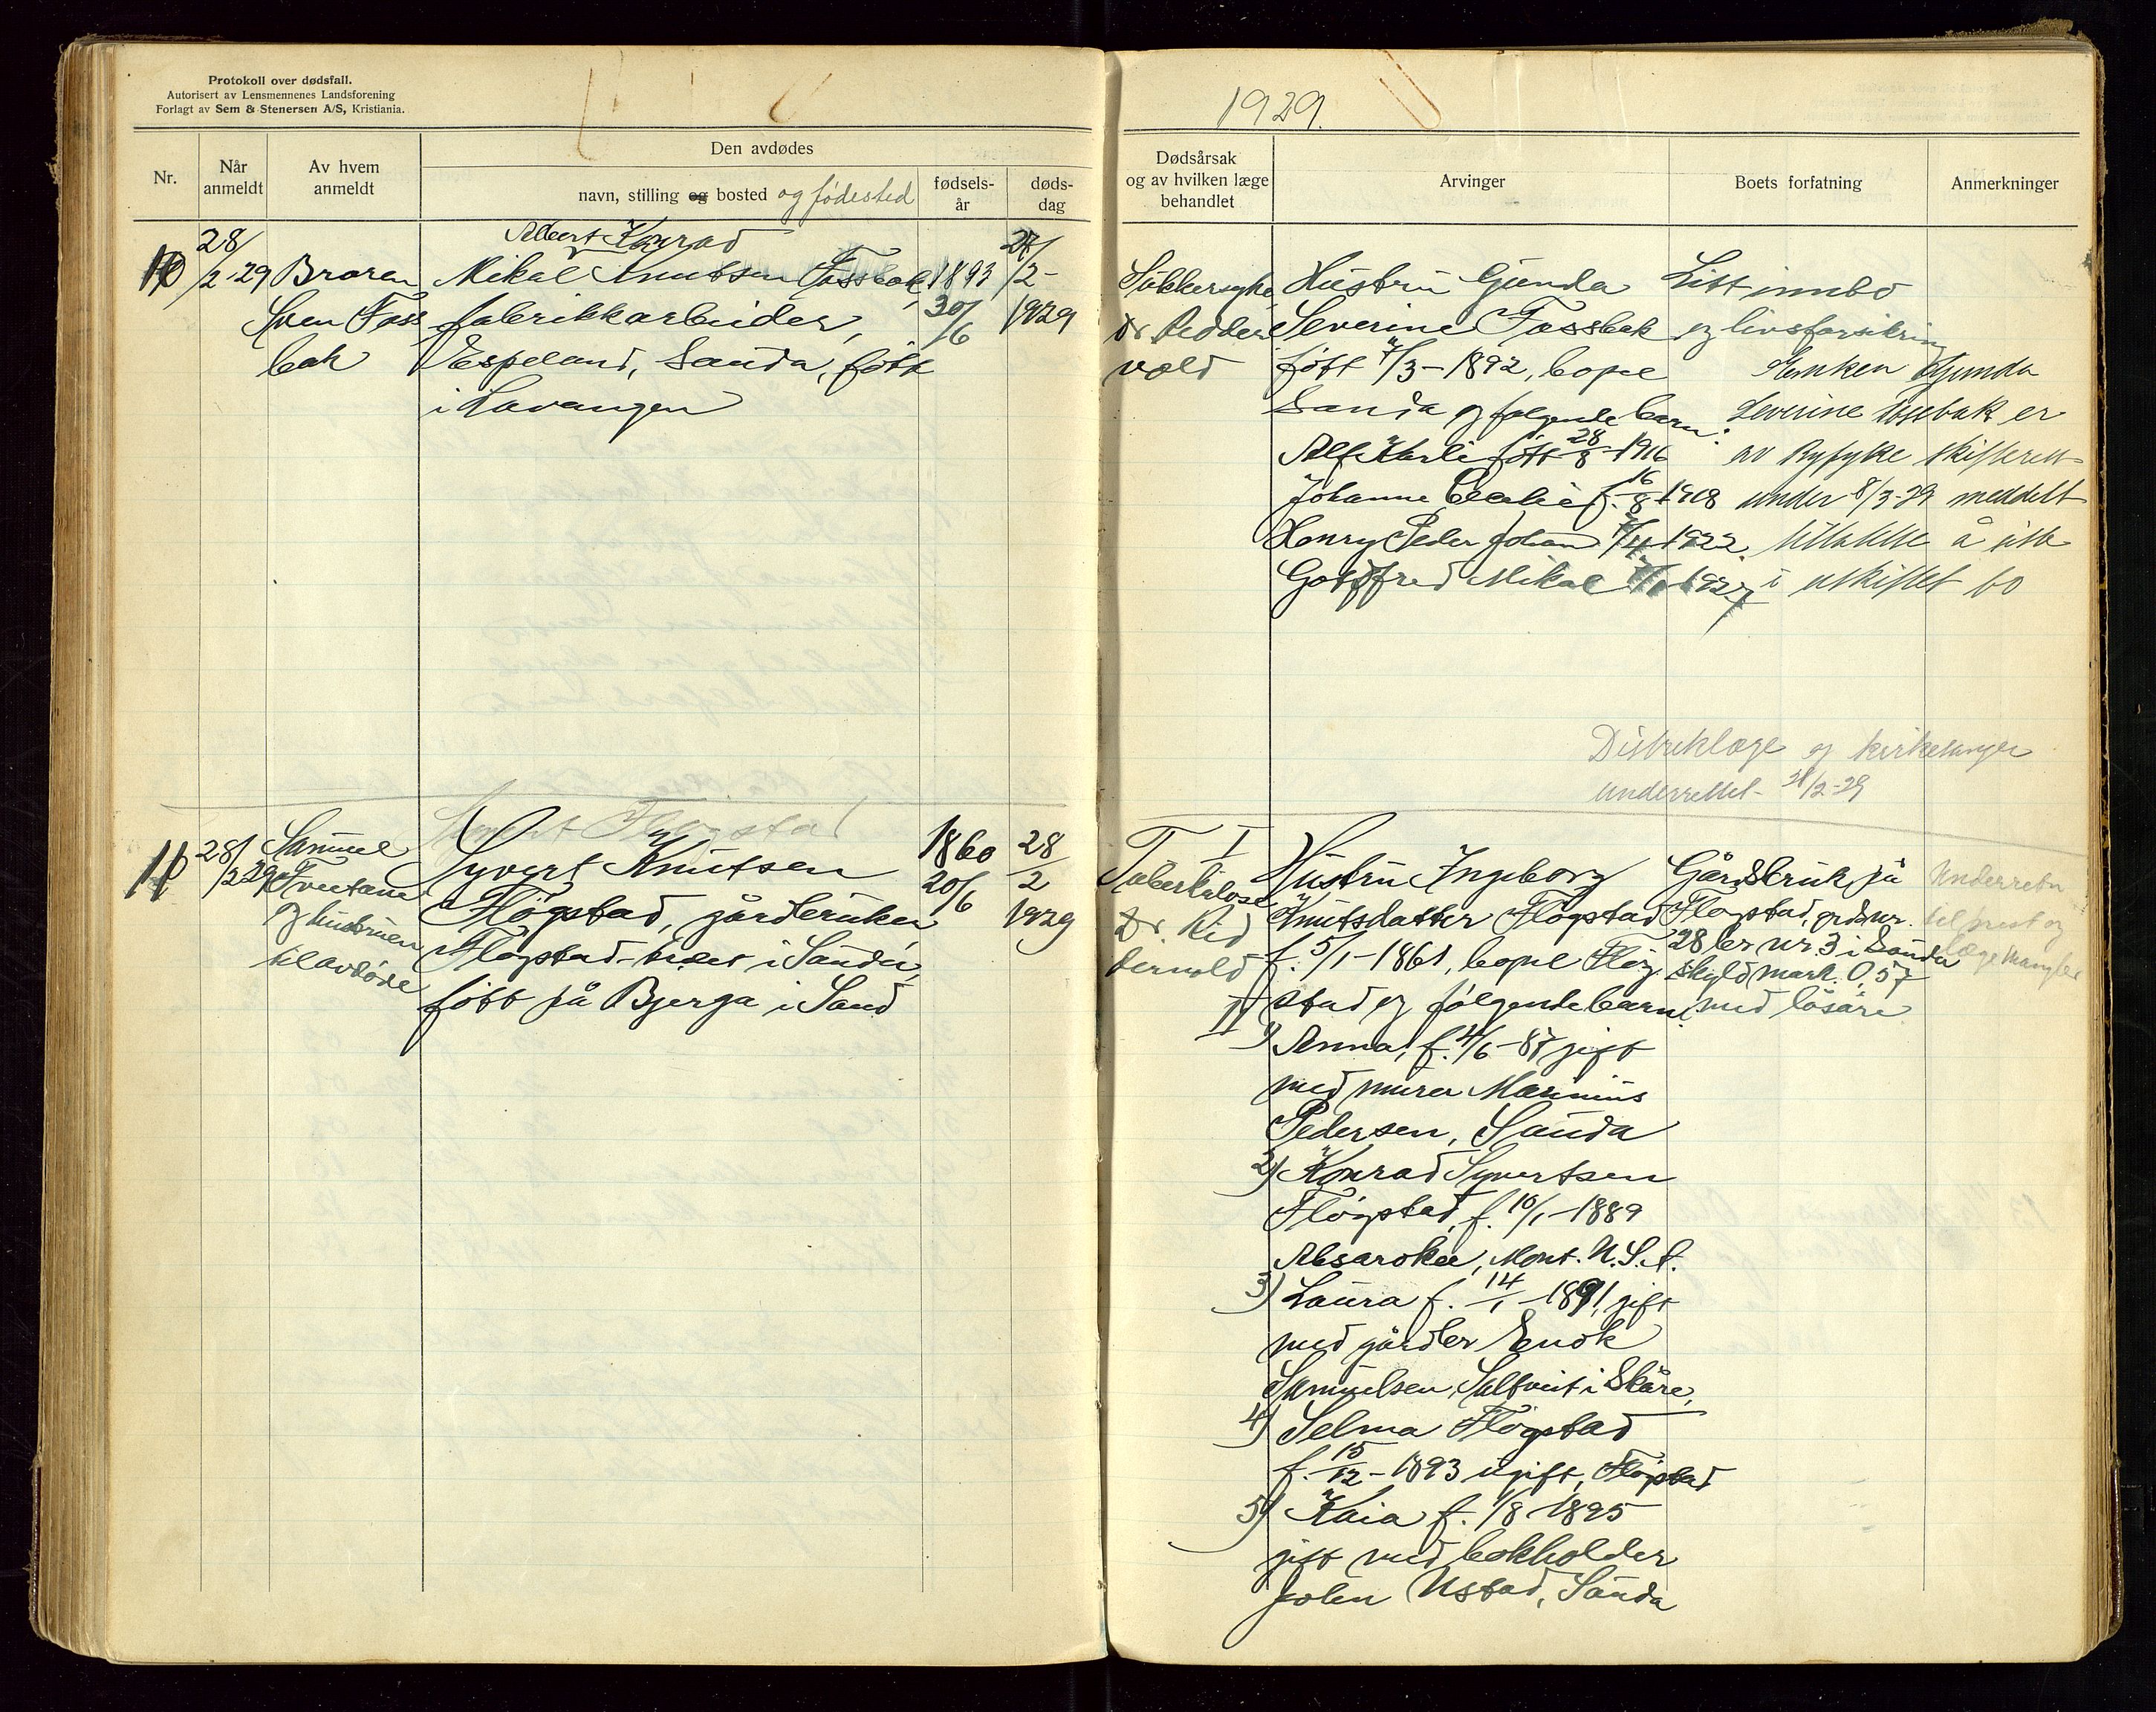 Protokoll over dødsfall.
Autorisert av Lensmennenes Landsforening
Forlagt av Sem & Stenersen A/S, Kristiania.
Nr.
Når anmeldt
Av hvem anmeldt
Den avdødes
navn, stilling og bosted og fødested
fødsels-
år
døds-
dag
10
28/2-29
Broren
Sven Foss
bak
Albert Konrad
Mikal Knutsen Fossbak,
fabrikkarbeider,
Espeland, Sauda, født
i Lavangen
1893
30/6
27/2-
1929
11
28/2 29
Samuel
Tveitane
og hustruen
til avdøde
Syvert Knutsen
Fløgstad, gårdbruker,
Fløgstad-bruket i Sauda,
født på Bjerga i Sand
1860
20/6
28
2
1929
1929.
Dødsårsak
og av hvilken læge
behandlet
Arvinger
Boets forfatning
Anmerkninger
Sukkersyke
Dr. Ridder
vold
Hustru Gunda
Severine Fossbak
født 4/3-1892, bopel
Sauda og følgende barn:
Alf Karli født 28/8-1916
Johanne Cecelie f. 16/8 1918
Henry Peder Johan 4/4-1922.
Gotffred Mikal 1927
Litt innbo
og livsforsikring
Enken Gunda
Severine Fossbak er
av Ryfylke skifterett
under 8/3-29 meddelt
tillatelse å sitte
i uskiftet bo
Distriktlæge og kirkesanger
underrettet 28/2-29
Tuberkulose
Dr. Rid
dervold
I
Hustru Ingeborg
Knutsdatter Fløgstad
f. 5/1-1861, bopel Fløg
stad og følgende barn:
II
1) Anna, f. 4/6-87 gift
med murer Marinius
Pedersen, Sauda
2) Konrad Syvertsen
Fløgstad, f. 10/1-1889
Absarokee, Mont. U.S.A.
3) Laura f. 14/1-1891, gift
med gårdbr Enok
Samuelsen, Saltveit i Skåre,
4) Selma Fløgstad
f. 15/12-1893 ugift, Fløgstad
5) Kaia f. 1/8 1895
gift med bokholder
John Ustad, Sauda
Gårdsbruk på
Fløgstad, grdsnr.
28 br nr. 3 i Sauda
skyld mark. 0,57
med løsøre
Underretn
til prest og
læge mangler